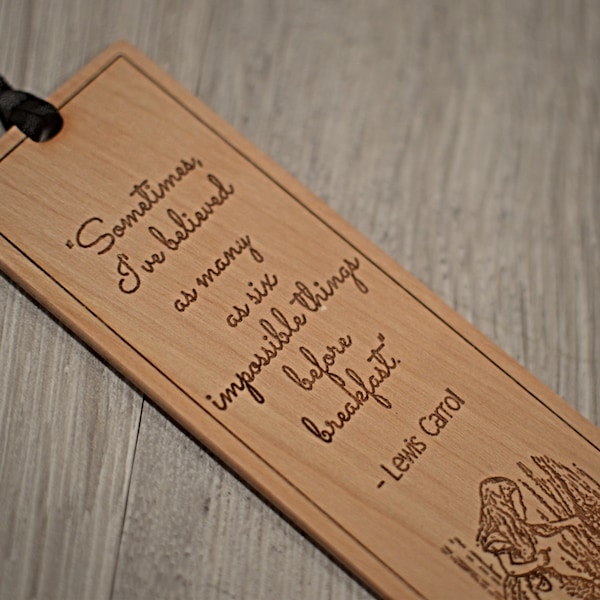 "Sometimes,
I've believed
as many
as six
impossible things
before
breakfast."
- Lewis Carrol